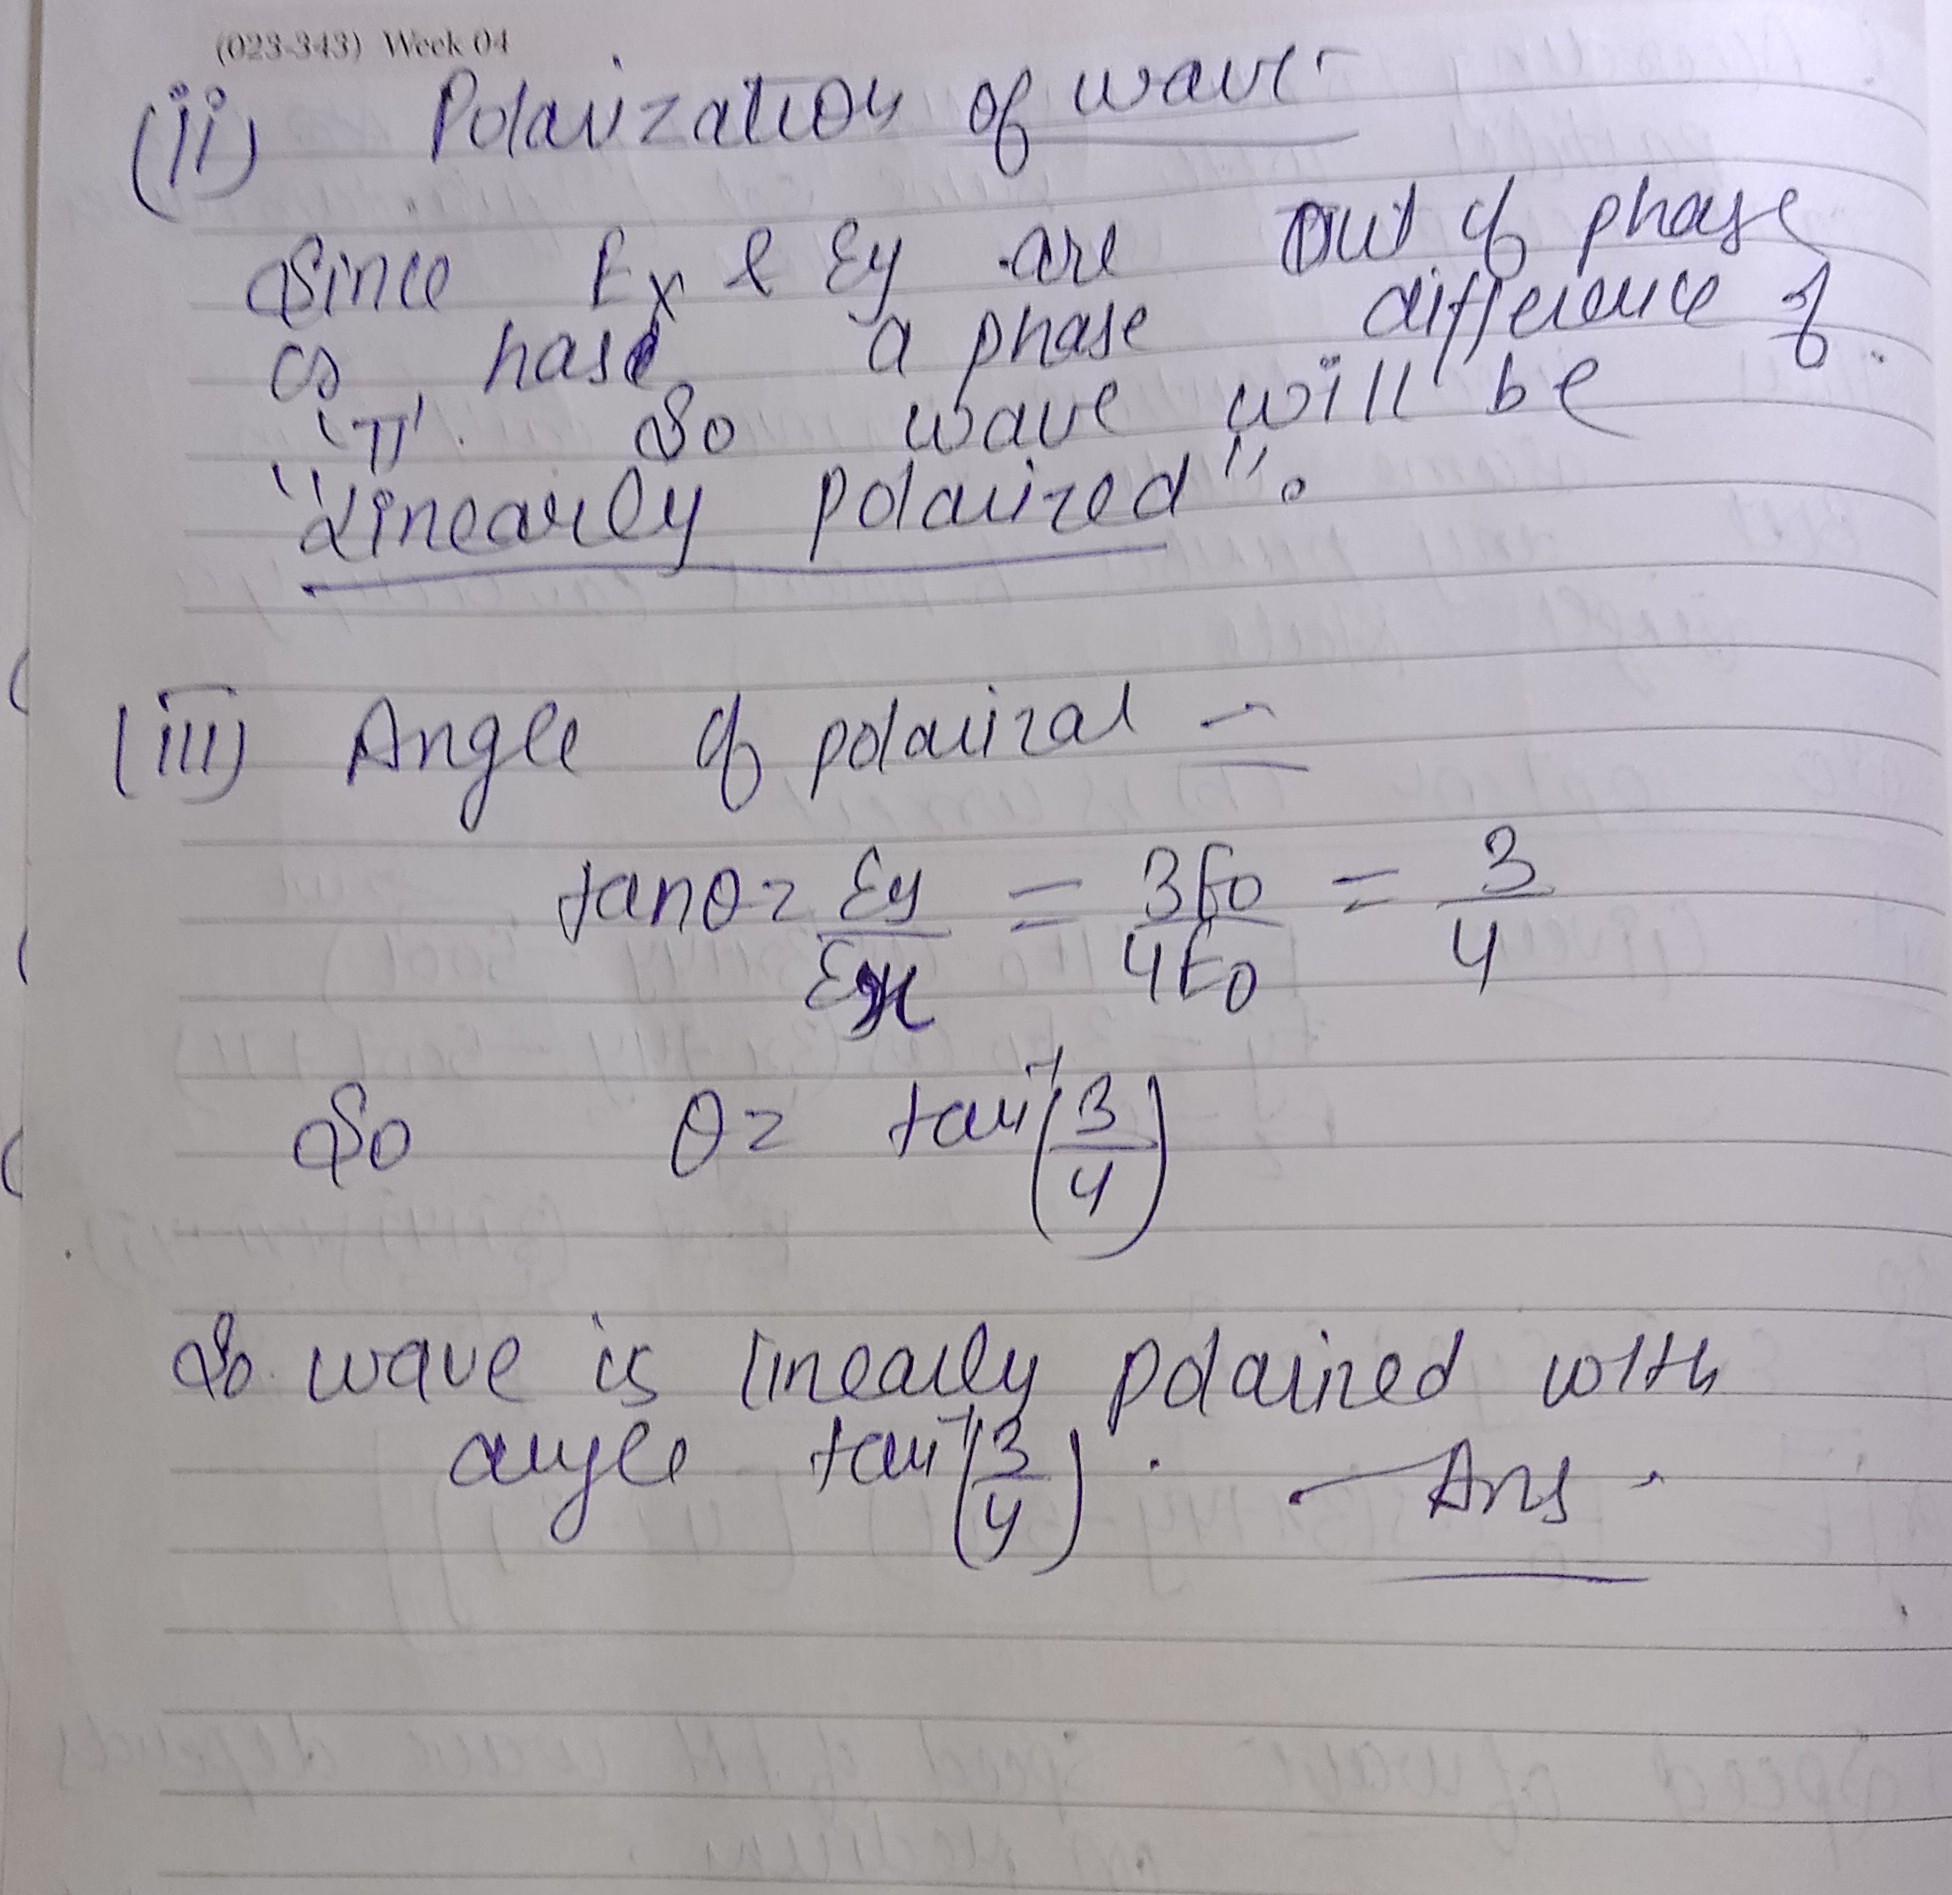 (023-343) Week 04
(ii) Polarization of wave -
Since Ex & Ey are out of phase
or has a phase difference of
'π'. So wave will be
"Linearly polarized".
(iii) Angle of polarizat -
tanθ = Ey/Ex = 3E0/4E0 = 3/4
So θ = tan⁻¹(3/4)
So wave is linearly polarized with
angle tan⁻¹(3/4). - Ans.